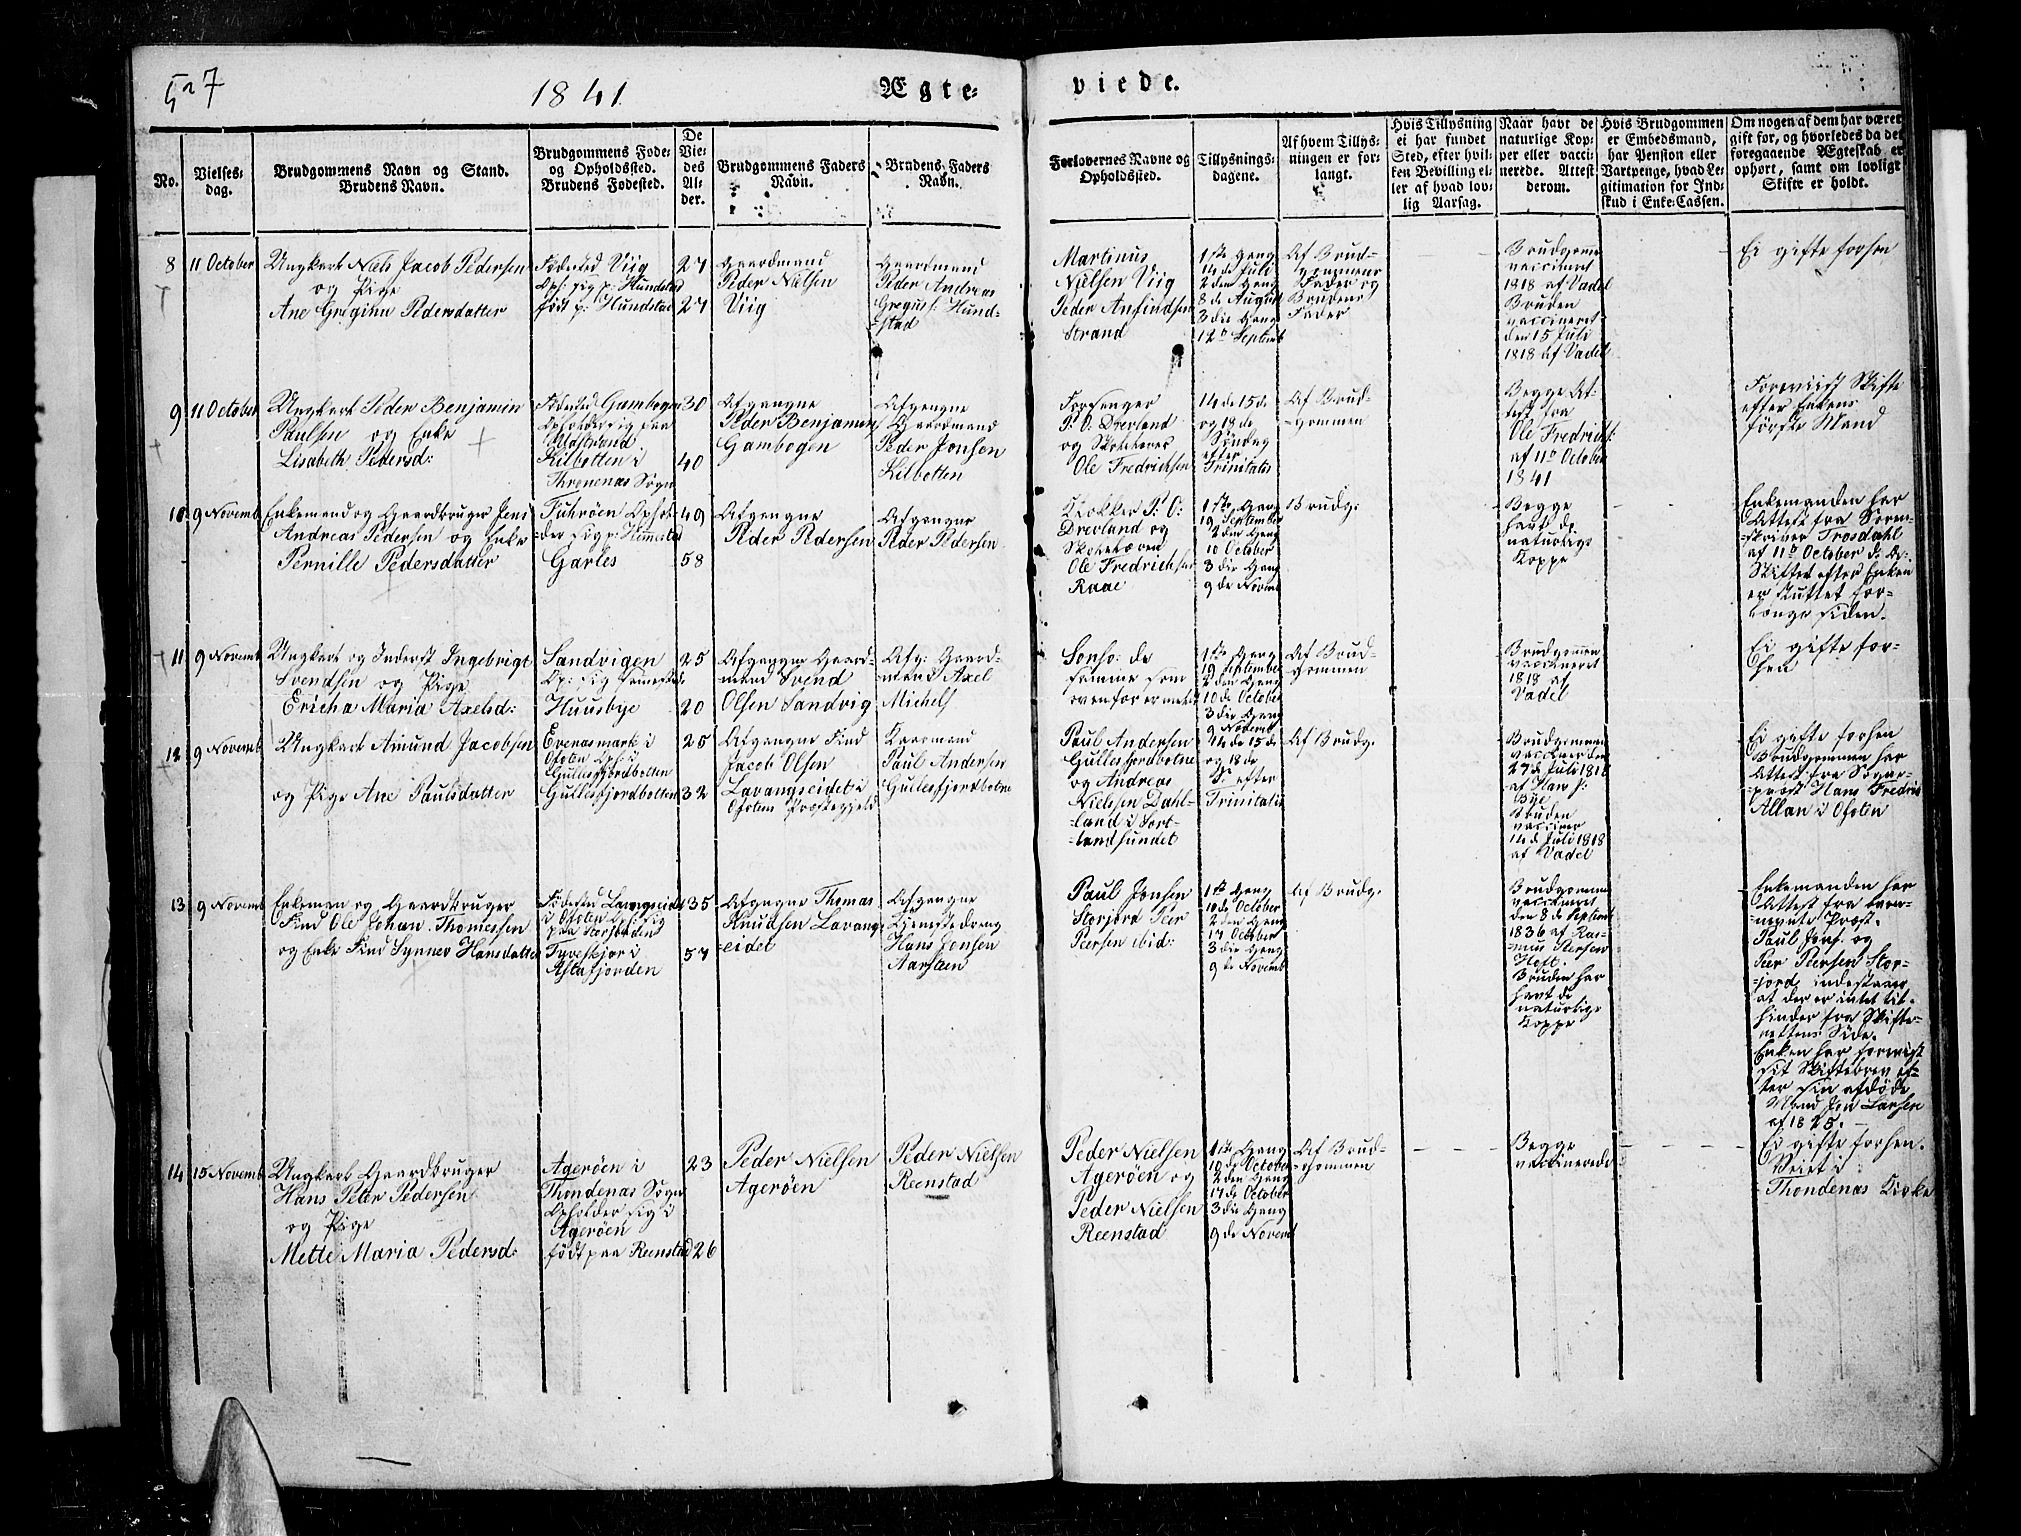 527
1841
Ægte=
viede.
No.
Vielses=
dag.
Brudgommens Navn og Stand.
Brudens Navn.
Brudgommens Føde=
og Opholdssted.
Brudens Fødested.
De
Vie=
des
Al=
der.
Brudgommens Faders
Navn.
Brudens Faders
Navn.
Forlovernes Navne og
Opholdssted.
Tillysnings=
dagene.
Af hvem Tillys=
ningen er for=
langt.
Hvis Tillysning
ei har fundet
Sted, efter hvil=
ken Bevilling el=
ler af hvad lov=
lig Aarsag.
Naar havt de
naturlige Kop=
per eller vacci=
nerede. Attest
derom.
Hvis Brudgommen
er Embedsmand,
har Pension eller
Vartpenge, hvad Le=
gitimation for Ind=
skud i Enke=Cassen.
Om nogen af dem har været
gift før, og hvorledes da det
foregaaende Ægteskab er
ophørt, samt om lovligt
Skifte er holdt.
8
11 October
Ungkarl Niels Jacob Pedersen
og Pige
Ane Gregina Pedersdatter
Fødested Viig
Oph: sig p: Hundstad
født p: Hundstad
27
27
Gaardmand
Peder Nielsen
Viig
Gaardmand
Peder Andreas
Gregus: Hund=
=stad
Martinus
Nielsen Viig
Peder Anfindsen
Strand
1ste Gang
14 de Juli
2den Gang
8 de August
3die Gang
12te Septemb
Af Brud=
gommens
Fader og
Brudens
Fader
Brudgomm
vaccineret
1818 af Vadel
Bruden
vaccineret
den 15 Juli
1818 af Vadel
Ei gifte forhen
9
11 October
Ungkarl Peder Benjamin
Paulsen og Enke
Lisabeth Pedersd:
Fødested Gambogen
Opholder sig paa
Kilbotten i
Throndenæs Sogn
30
40
Afgangne
Peder Benjamin
Gambogen
Afgangne
Gaardmand
Peder Jonsen
Kilbotten
Forsanger
P. O. Drevland
og Skolelærer
Ole Fredrichsen
14 de 15 de
og 18 de
Søndag
efter
Trinitatis
Af Brud=
=gommen
Begge At=
test fra
Ole Fredrichs:
af 11te October
1841
Foreviist Skifte
efter Enkens
første Mand
10
9 Novemb
Enkemand og Gaardbruger Jens
Andreas Pedersen og Enke
Pernille Pedersdatter
Garles
49
58
Afgangne
Peder Pedersen
Afgangne
Peder Pedersen
Klokker P. O:
Drevland og
Skolelærer
Ole Fredrichsen
Raae
1ste Gang
19 September
2den Gang
10 October
3die Gang
9 de Novemb
Brudg:
Begge
havt de
naturlige
Koppe
Enkemanden har
Attest fra Soren=
skriver Trosdahl
af 11te October d: A:
Skiftet efter Enken
er sluttet for=
længe siden.
11
9 Novemb
Ungkarl og Inderst Ingebrigt
Svendsen og Pige
Ericha Maria Axelsd:
Sandvigen
Op: sig sammested:
Huusbye
25
20
Afgangne Gaard=
mand Svend
Olsen Sandvig
Afg: Gaard=
mand Axel
Michels
de
samme som
ovenfor er meldt
1ste Gang
19 September
2den Gang
10 de October
3die Gang
9 Novemb
Af Brud=
gommen
Brudgommen
vaccineret
1818 af
Vadel
Ei gifte for=
hen
12
9 Novemb
Ungkarl Amund Jacobsen
og Pige Ane Paulsdatter
Evenæsmark i
Ofoten Oph: i
Gullesfjordbotten
Gullesfjordbotten
25
32
Afgangne Find
Jacob Olsen
Lavangseidet i
Ofoten Præstegjeld
Gaardmand
Paul Andersen
Gullesfjordbotne
Paul Andersen
Gullesfjordbotne
og Andreas
Nielsen Dahl=
=land i Sort=
landsundet
14 de 15 de
og 18 de
S: efter
Trinitatis
Af Brudg:
Brudgommen
vaccineret den
27 de Juli 1818
af Hans P:
Bye
Bruden
vaccineret
14 de Juli 1818
af Vadel
Ei gifte forhen
Brudgommen har
Attest fra Sogne=
præst Hans Fredrik
Allan i Ofoten
13
9 Novemb
Enkemand og Gaardbruger
Find Ole Johan Thomessen
og Enke Find Synnev Hansdatter
Fødested Lavangseidet
i Ofoten Oph: sig
paa Storjorden
Tyveskjær i
Astafjorden
35
57
Afgangne Thomas
Knudsen Lavangs
=eidet
Afgangne
Tjenestedreng
Hans Jonsen
Aarsteen
Paul Jonsen
Storjord Peer
Peersen ibid:
1ste Gang
10 de October
2den Gang
17 October
3die Gang
9 de Novemb
Af Brudg:
Brudgommen
vaccineret
den 8 de Septemb
1836 af Ras=
mus Peersen
Hoft.
Bruden har
havt de
naturlige
Koppe
Enkemanden har
Attest fra
Paul Jons: og
Peer Peersen Stor=
=jord, indestaaer
at der er intet til
hinder fra Skifte=
rettens Side.
Enken har foreviist
sit Skiftebrev ef=
ter sin afdøde
Mand Jon Larsen
af 1825.
14
15 Novemb
Ungkarl Gaardbruger
Hans Peter Pedersen
og Pige
Mette Maria Pedersd:
Agerøen i
Throndenæs Sogn
Opholder sig i
Agerøen
født paa Reenstad
23
26
Peder Nielsen
Agerøen
Peder Nielsen
Reenstad
Peder Nielsen
Agerøen og
Peder Nielsen
Reenstad
1ste Gang
10 de October
2den Gang
17 de October
3die Gang
9 de Novemb
Af Brud=
=gommen
Begge
vaccinerede
Ei gifte forhen.
Viet i
Throndenæs Kirke